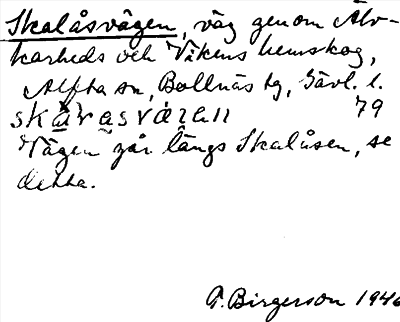 Skalåsvägen, väg genom Älv-
karheds och Vikens hemskog,
Alfta sn, Bollnäs tg, Gävl. l.
79
Vägen går längs Skalåsen, se
detta.
P. Birgerson 1946